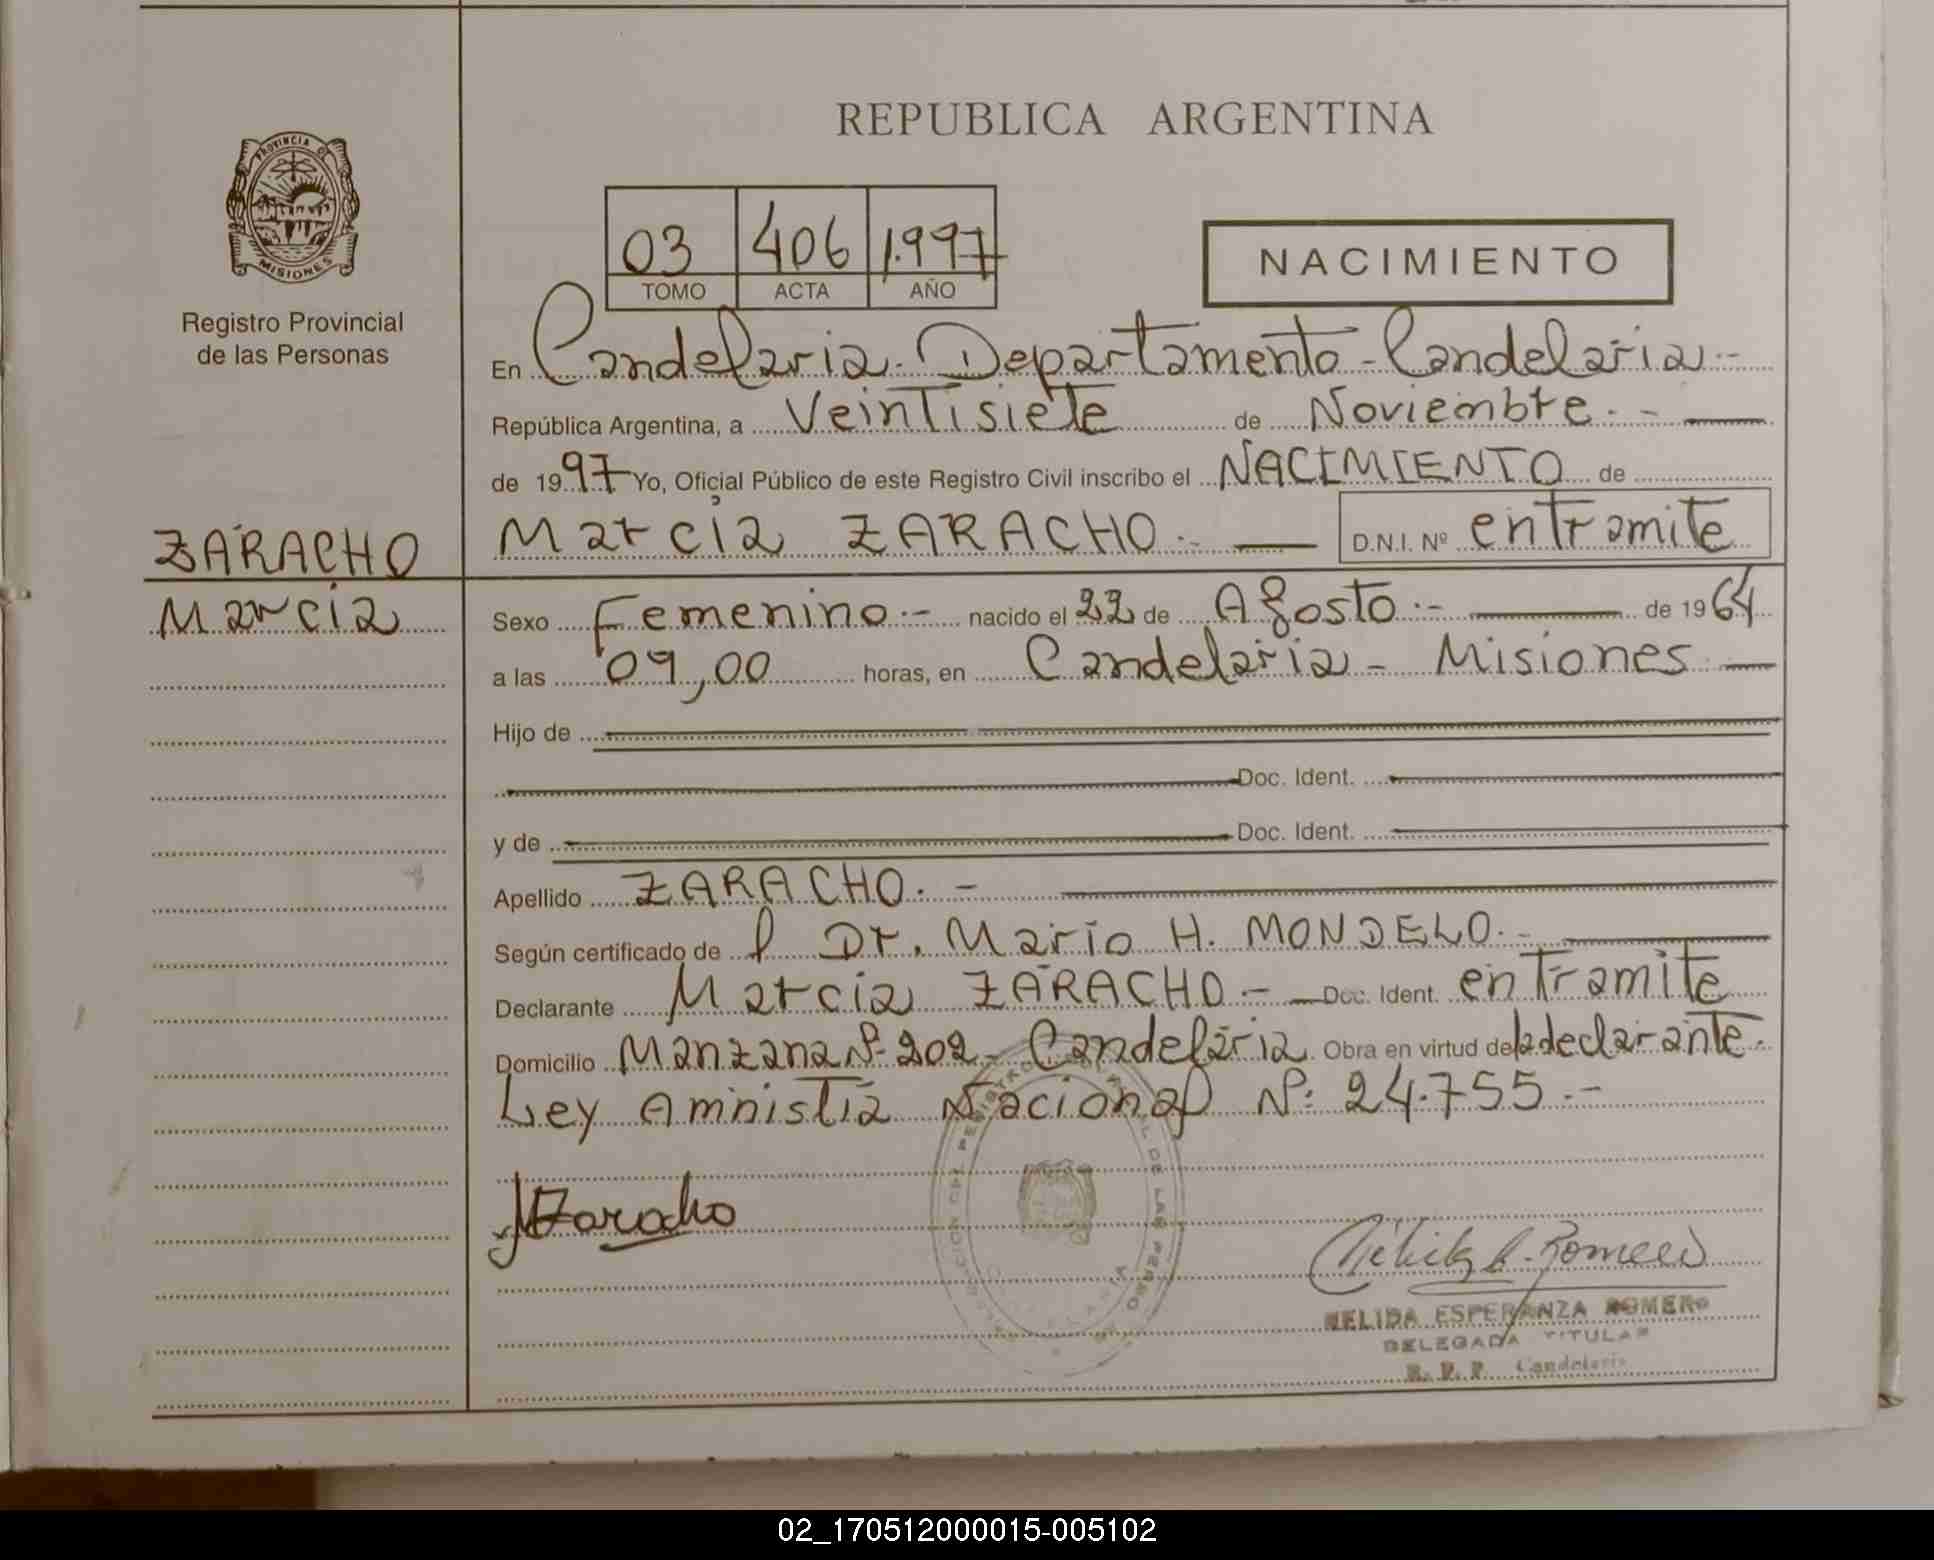 REPUBLICA ARGENTINA
PROVINCIA DE
MISIONES
Registro Provincial
de las Personas
03 406 1.997
TOMO ACTA AÑO
NACIMIENTO
En Candelaria - Departamento - Candelaria.-
República Argentina, a Veintisiete de Noviembre.-
de 1997 Yo, Oficial Público de este Registro Civil inscribo el NACIMIENTO de
ZARACHO
Marcia
Marcia ZARACHO.- D.N.I. Nº en Tramite
Sexo Femenino.- nacido el 22 de Agosto.- de 1964
a las 09,00 horas, en Candelaria - Misiones
Hijo de
Doc. Ident.
y de Doc. Ident.
Apellido ZARACHO.-
Según certificado de Dr. Mario H. MONDELO.-
Declarante Marcia ZARACHO.- Doc. Ident. en Tramite
Domicilio Manzana Nº 202 - Candelaria Obra en virtud de la declarante.
Ley Amnistia Nacional Nº: 24.755.-
MZaracho
Nélida E. Romero
NELIDA ESPERANZA ROMERO
DELEGADA TITULAR
R. P. P. Candelaria
02_170512000015-005102